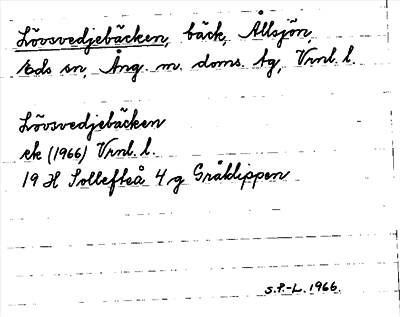 Lövsvedjebäcken, bäck, Ållsjön,
Eds sn, Ång. m. doms. hg, Vrnl. l.
Lövsvedjebäcken
ek (1966) Vrnl. l.
19 H Sollefteå 4 g Gråklippen
S.P.-L. 1966.